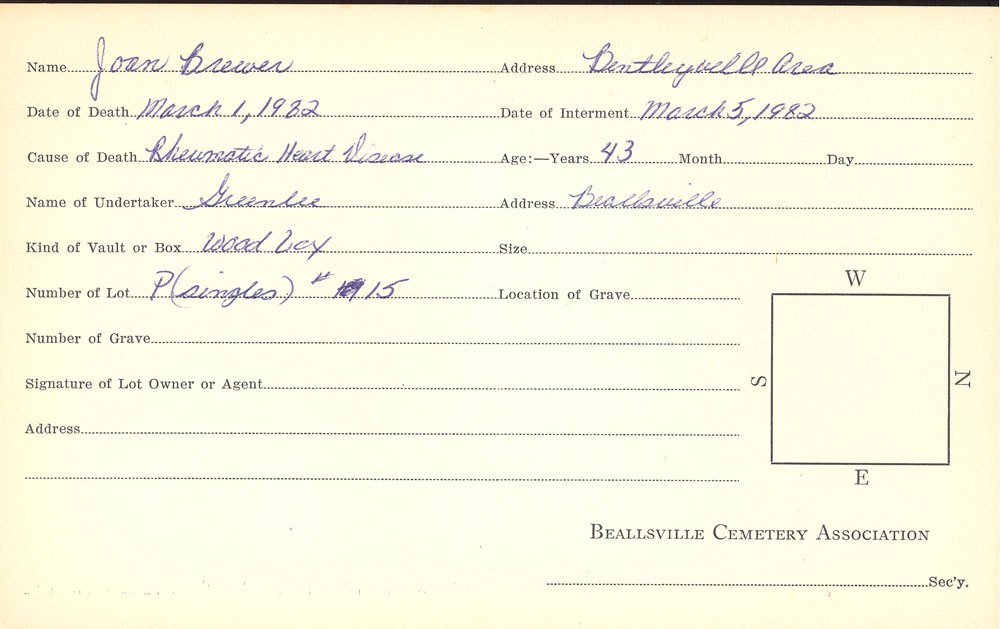 Name Joan Brewer Address Bentleyville Area
Date of Death March 1, 1982 Date of Interment March 5, 1982
Cause of Death Rheumatic Heart Disease Age:—Years 43 Month Day
Name of Undertaker Greenlee Address Beallsville
Kind of Vault or Box Wood box Size
Number of Lot P(singles) # 15 Location of Grave
W
Number of Grave
Signature of Lot Owner or Agent
S N
Address
E
BEALLSVILLE CEMETERY ASSOCIATION
Sec'y.